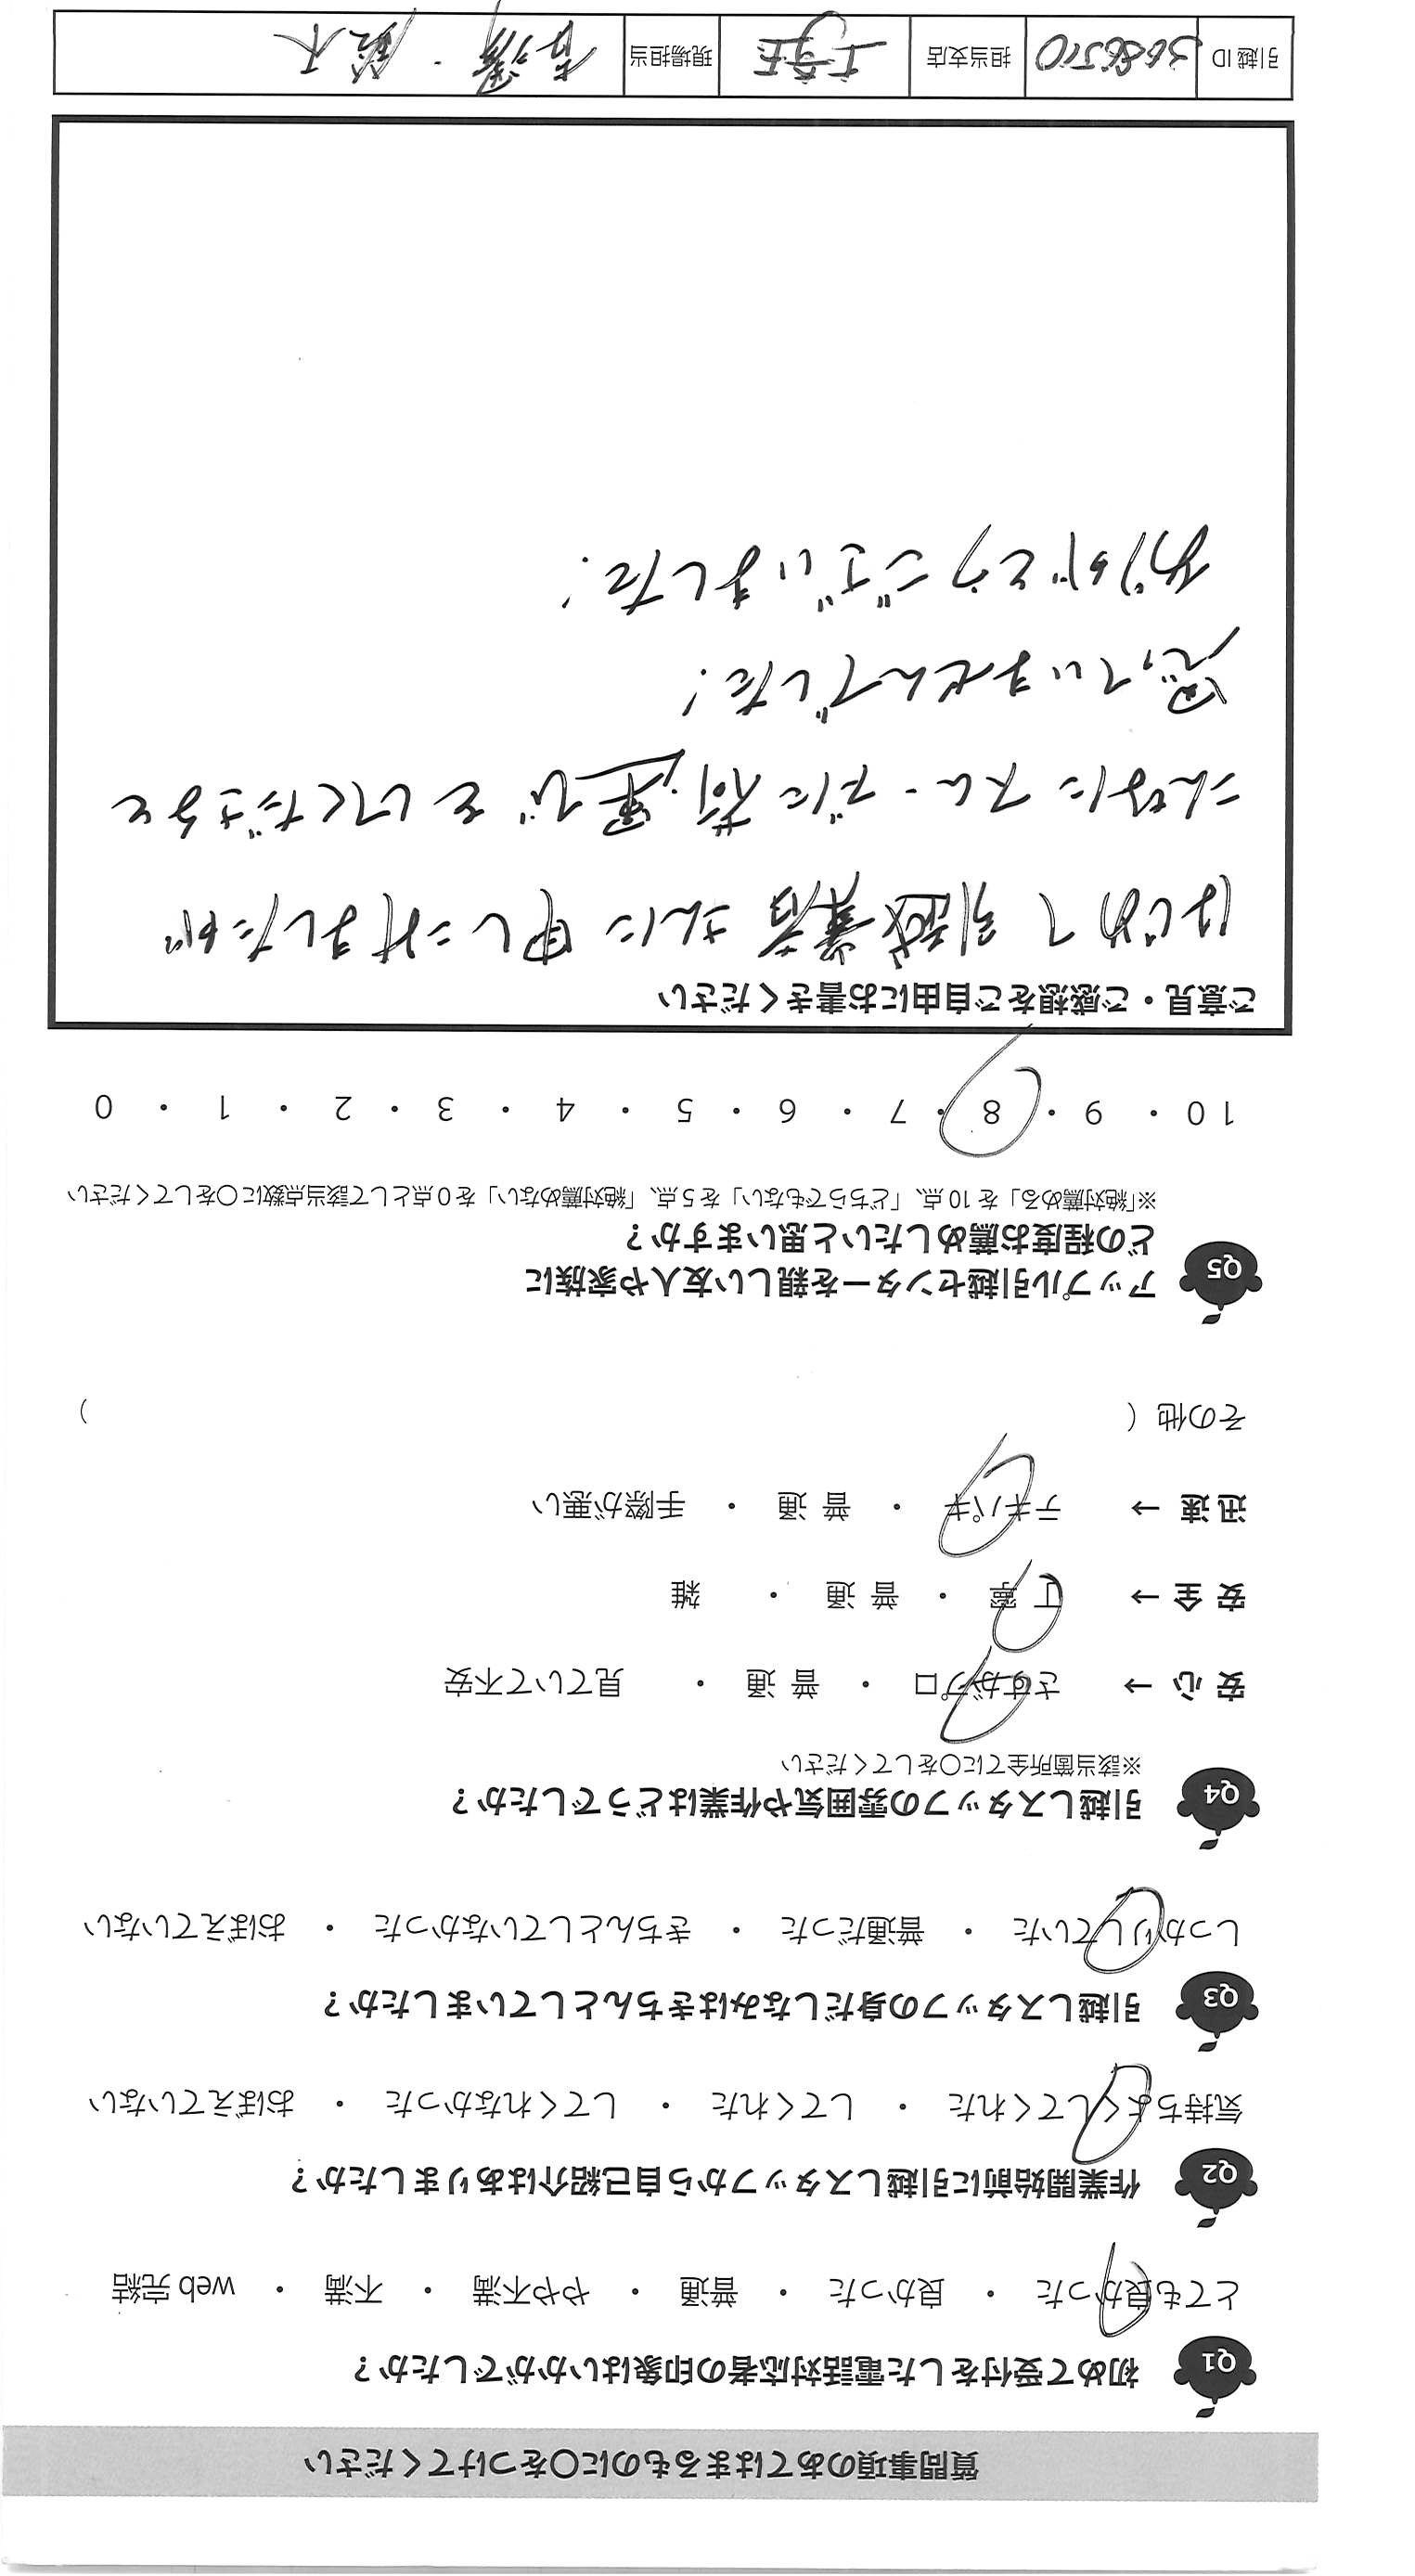 質問事項のあてはまるものに〇をつけてください
Q1 初めて受付をした電話対応者の印象はいかがでしたか？
とても良かった ・ 良かった ・ 普通 ・ やや不満 ・ 不満 ・ web 完結
Q2 作業開始前に引越しスタッフから自己紹介はありましたか？
気持ちよくしてくれた ・ してくれた ・ してくれなかった ・ おぼえていない
Q3 引越しスタッフの身だしなみはきちんとしていましたか？
しっかりしていた ・ 普通だった ・ きちんとしていなかった ・ おぼえていない
Q4 引越しスタッフの雰囲気や作業はどうでしたか？
※該当箇所全てに〇をしてください
安 心 → さすがプロ ・ 普 通 ・ 見ていて不安
安 全 → 丁 寧 ・ 普 通 ・ 雑
迅 速 → テキパキ ・ 普 通 ・ 手際が悪い
その他（ ）
Q5 アップル引越センターを親しい友人や家族に
どの程度お薦めしたいと思いますか？
※「絶対薦める」を 10 点、「どちらでもない」を 5 点、「絶対薦めない」を 0 点として該当点数に〇をしてください
10 ・ 9 ・ 8 ・ 7 ・ 6 ・ 5 ・ 4 ・ 3 ・ 2 ・ 1 ・ 0
ご意見・ご感想をご自由にお書きください
はじめて引越業者さんに申しこみましたが
こんなにスムーズに荷運びをしてくださると
思っていませんでした！
ありがとうございました！
引越 ID 3686510 担当支店 埼玉 現場担当 ・鈴木